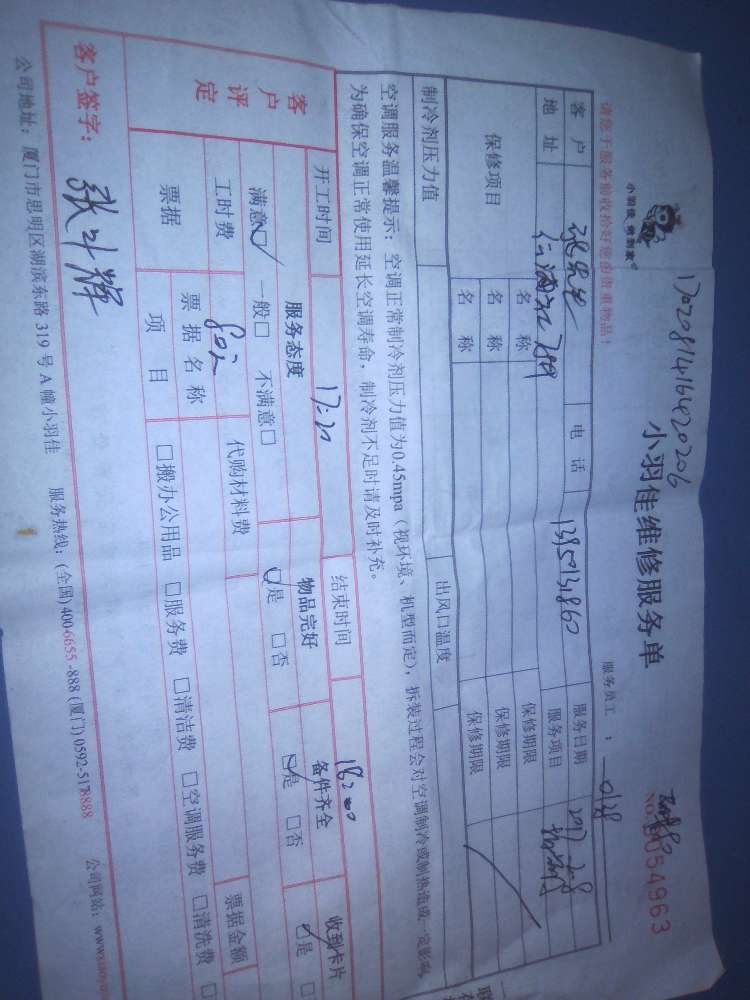 小羽佳 做到家®
17020814164420206
小羽佳维修服务单
NO. 0054963
请您于服务前收拾好您的贵重物品！
服务员工：
客户
电话
服务日期
地址
服务项目
保修项目
名称
保修期限
名称
保修期限
名称
保修期限
制冷剂压力值
出风口温度
空调服务温馨提示：空调正常制冷剂压力值为0.45mpa（视环境、机型而定），拆装过程会对空调制冷或制热造成一定影响，
为确保空调正常使用延长空调寿命，制冷剂不足时请及时补充。
开工时间 17:20 结束时间 18:00
客户评定
服务态度 物品完好 备件齐全 收到卡片
满意☑ 一般□ 不满意□ ☑是 □否 ☑是 □否 ☑是 □
工时费 80元 代购材料费
票据 票据名称 票据金额
项目 □搬办公用品 □服务费 □清洁费 □空调服务费 □清洗费 □
客户签字：
公司地址：厦门市思明区湖滨东路319号A幢小羽佳 服务热线：(全国)400-6655-888 (厦门)0592-5178888 公司网站：www.